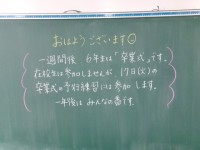 おはようございます☺
一週間後 6年生は「卒業式」です。
在校生は参加しませんが 17日(火)の
卒業式の予行練習には参加します。
一年後はみんなの番です。